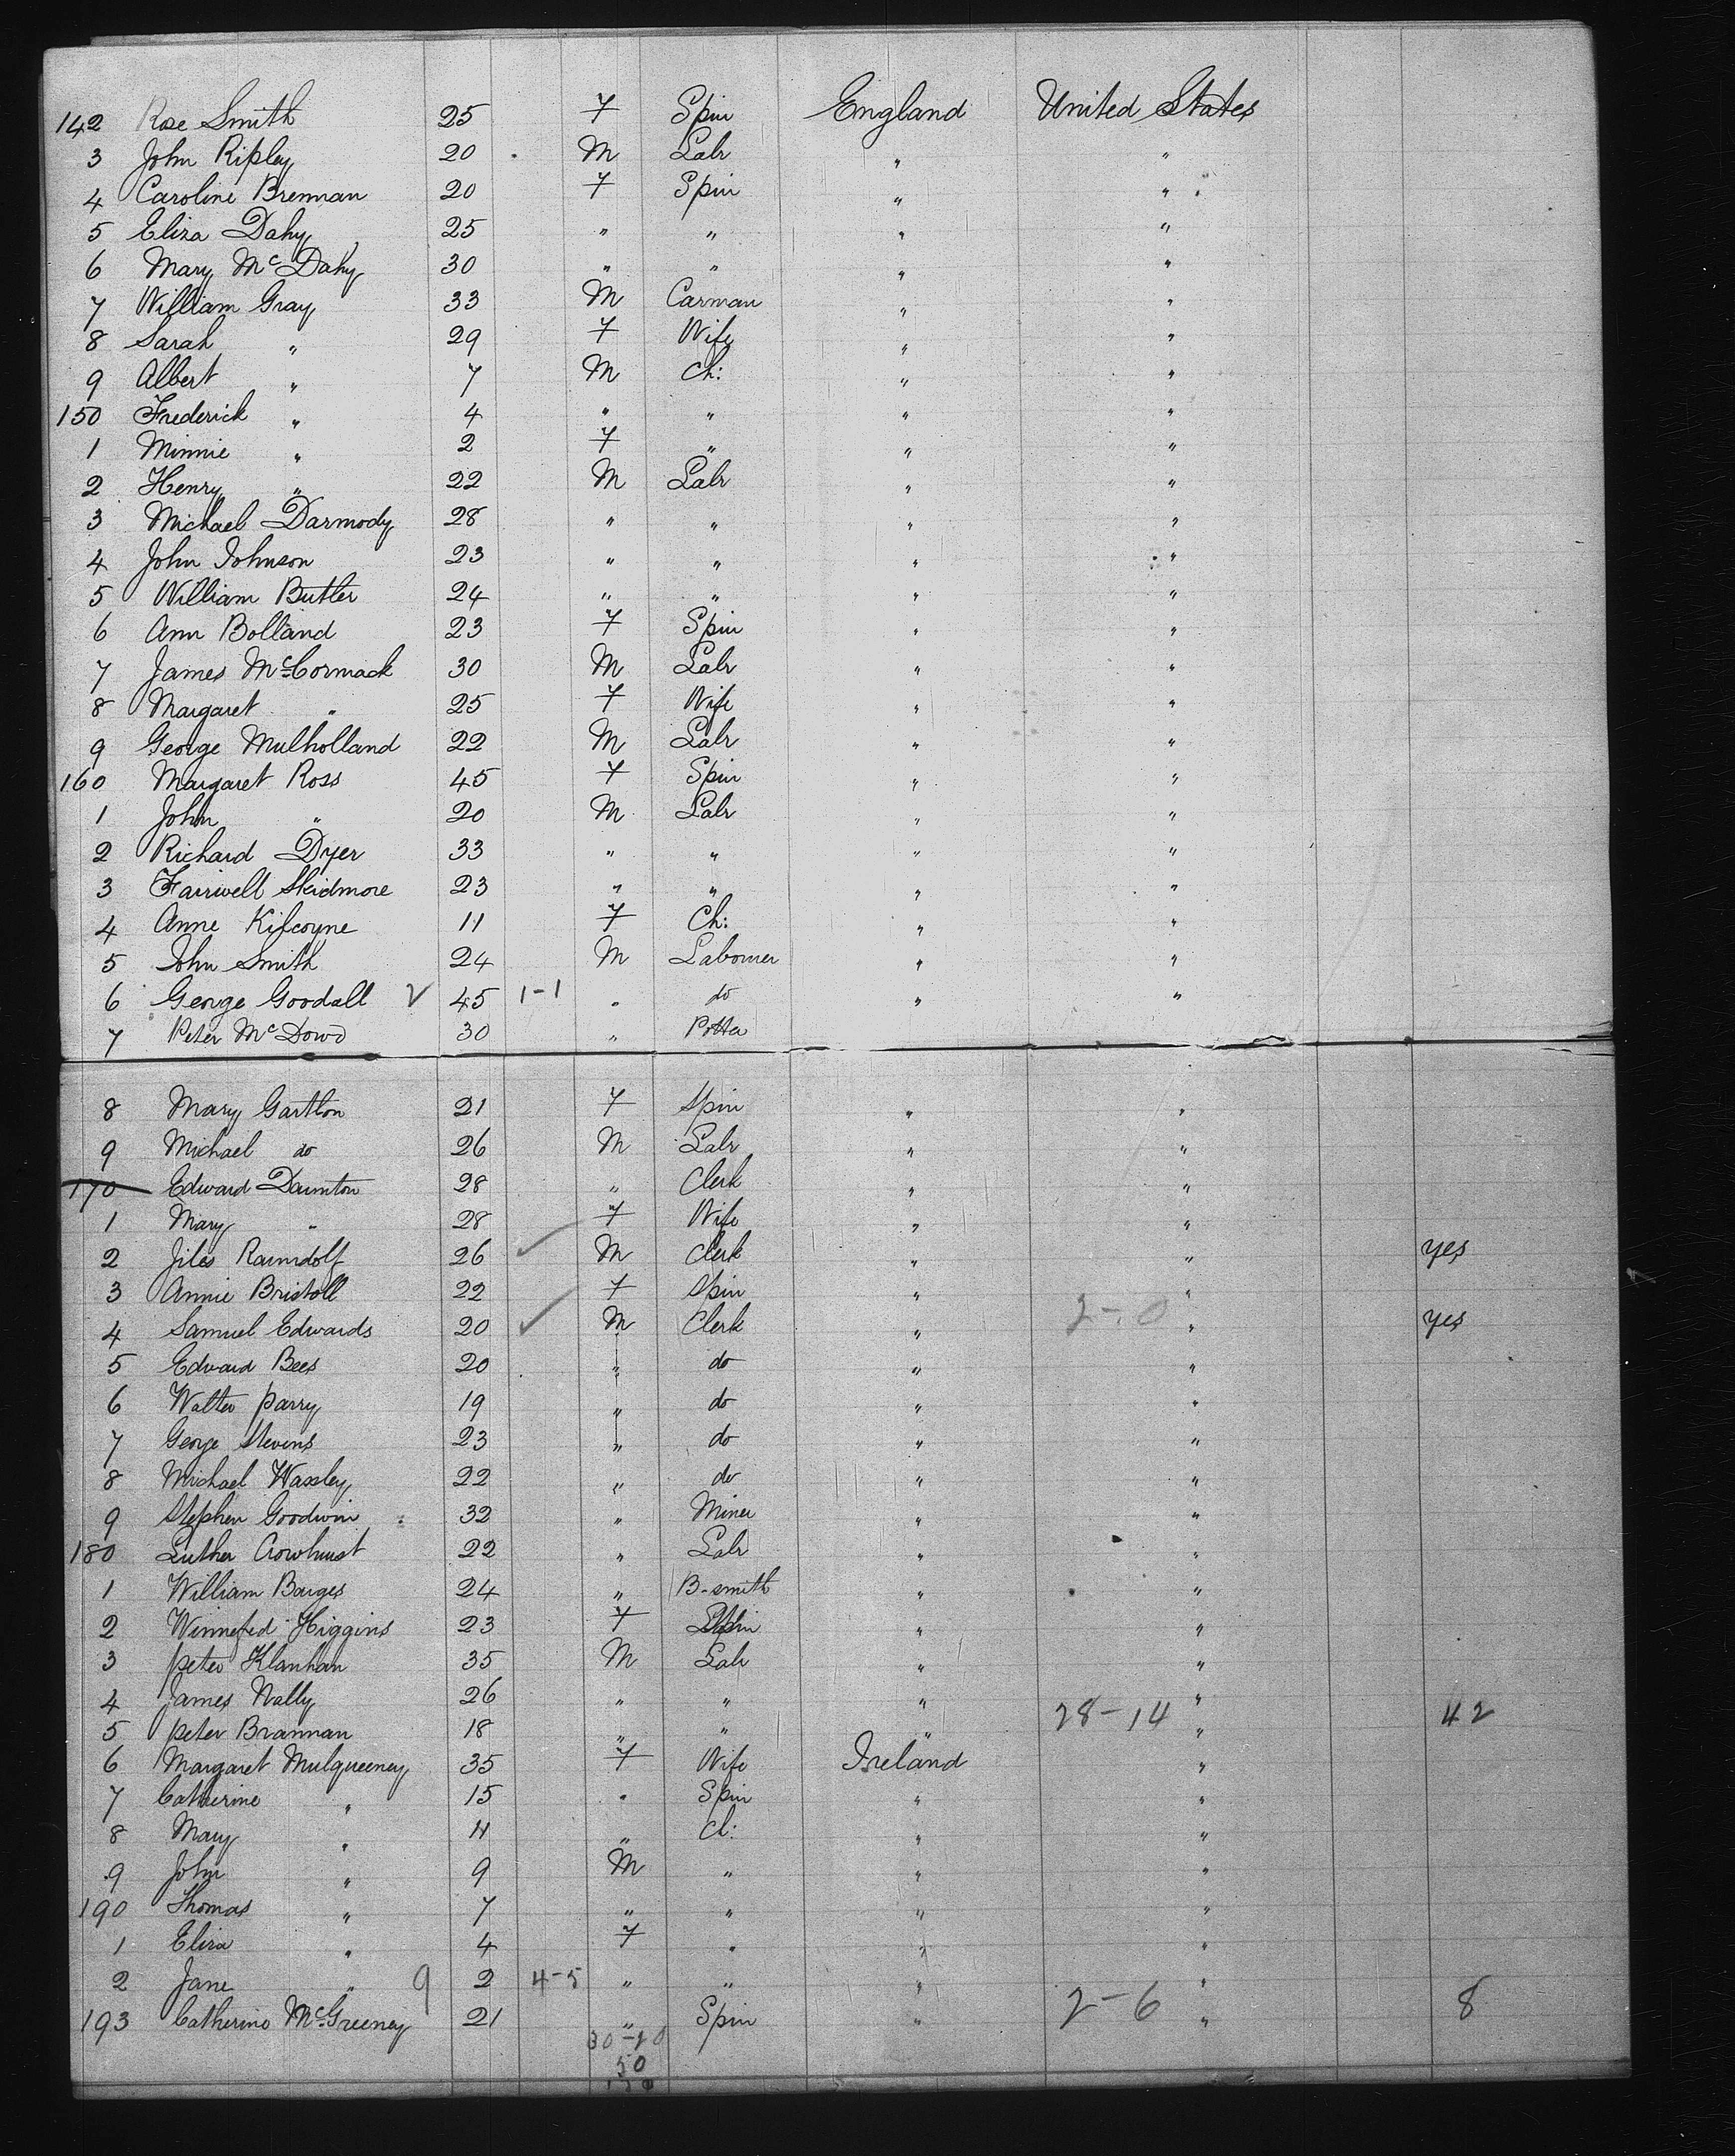 142 Rose Smith 25 F Spin England United States
3 John Ripley 20 M Labr " "
4 Caroline Brennan 20 F Spin " "
5 Eliza Dahy 25 " " " "
6 Mary McDahy 30 " " " "
7 William Gray 33 M Carman " "
8 Sarah " 29 F Wife " "
9 Albert " 7 M Ch: " "
150 Frederick " 4 " " " "
1 Minnie " 2 F " " "
2 Henry " 22 M Labr " "
3 Michael Darmody 28 " " " "
4 John Johnson 23 " " " "
5 William Butler 24 " " " "
6 Ann Bolland 23 F Spin " "
7 James McCormack 30 M Labr " "
8 Margaret " 25 F Wife " "
9 George Mulholland 22 M Labr " "
160 Margaret Ross 45 F Spin " "
1 John " 20 M Labr " "
2 Richard Dyer 33 " " " "
3 Fairwell Skidmore 23 " " " "
4 Anne Kilcoyne 11 F Ch: " "
5 John Smith 24 M Labourer " "
6 George Goodall ✓ 45 1-1 " do " "
7 Peter McDowd 30 " Potter
8 Mary Gartlon 21 F Spin " "
9 Michael do 26 M Labr " "
170 Edward Daunton 28 " Clerk " "
1 Mary " 28 F Wife " "
2 Jiles 26 ✓ M Clerk " " yes
3 Annie Bristoll 22 F Spin " "
4 Samuel Edwards 20 ✓ M Clerk " 2-0 " yes
5 Edward Bees 20 " do " "
6 Walter Parry 19 " do " "
7 George Stevens 23 " do " "
8 Michael Waxley 22 " do " "
9 Stephen Goodwin 32 " Miner " "
180 Luther Crowhurst 22 " Labr " "
1 William Barges 24 " B-smith " "
2 Winnefed Higgins 23 F Spin " "
3 Peter Klanhan 35 M Labr " "
4 James Nally 26 " " " 28-14 " 42
5 Peter Brannan 18 " " " "
6 Margaret Mulqueeney 35 F Wife Ireland "
7 Catherine " 15 " Spin " "
8 Mary " 11 " Ch: " "
9 John " 9 M " " "
190 Thomas " 7 " " " "
1 Eliza " 4 F " " "
2 Jane " 9 2 4-5 " " " "
193 Catherine McGreeney 21 " Spin " 2-6 " 8
50